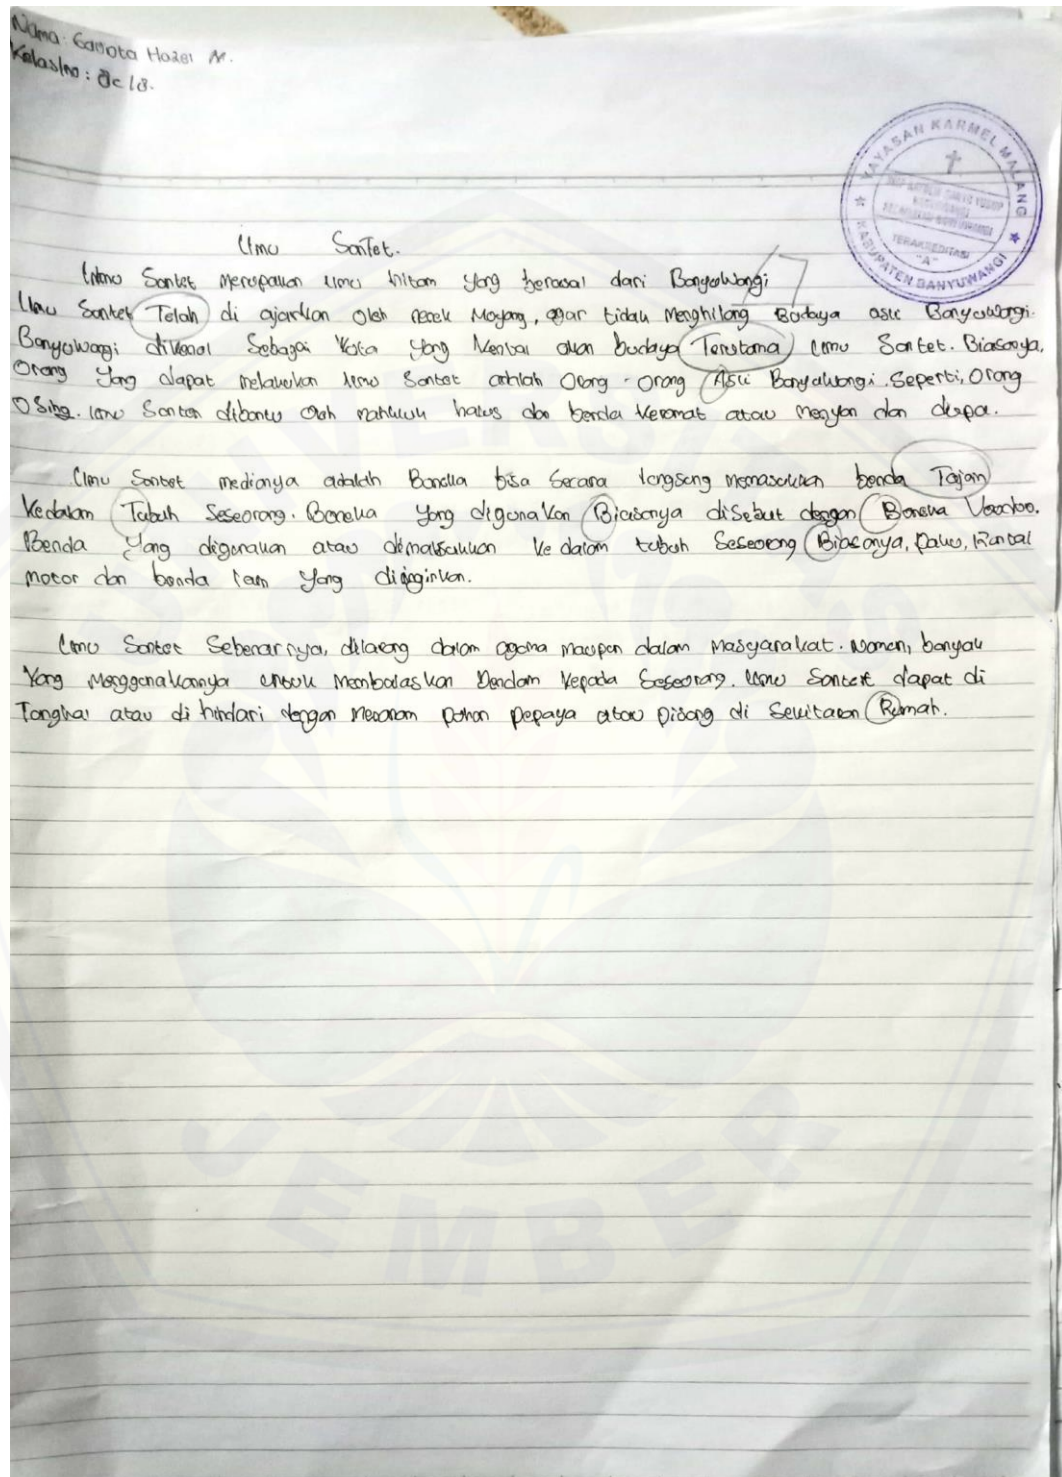 Nama: Gavota Hazel M.
Kelas/no: 8c/8.
YAYASAN KARMEL MALANG
TERAKREDITASI
"A"
KABUPATEN BANYUWANGI
Ilmu Santet.
Ilmu Santet merupakan ilmu hitam yang berasal dari Banyuwangi
Ilmu Santet Telah di ajarkan oleh nenek Moyang, agar tidak Menghilang Budaya asli Banyuwangi.
Banyuwangi dikenal Sebagai Kota yang Kental akan budaya Terutama ilmu Santet. Biasanya,
Orang yang dapat melakukan ilmu Santet adalah Orang-orang Asli Banyuwangi. Seperti, Orang
OSing. ilmu Santen dibantu Oleh mahkluk halus dan benda Keramat atau Menyan dan dupa.
Ilmu Santet medianya adalah Boneka bisa Secara langsung memasukkan benda Tajam
Kedalam Tubuh Seseorang. Boneka yang digunakan Biasanya diSebut dengan Boneka Voodoo.
Benda yang digunakan atau dimaksukkan Ke dalam tubuh Seseorang Biasanya, paku, Rantai
motor dan benda lain yang diinginkan.
Ilmu Santet Sebenarnya, dilarang dalam agama maupun dalam Masyarakat. Namun, banyak
Yang Menggunakannya untuk Membalaskan Dendam Kepada Seseorang. Ilmu Santett dapat di
Tangkal atau di hindari dengan Menanam pohon pepaya atau pisang di Sekitaran Rumah.
UNIVERSITAS
JEMBER